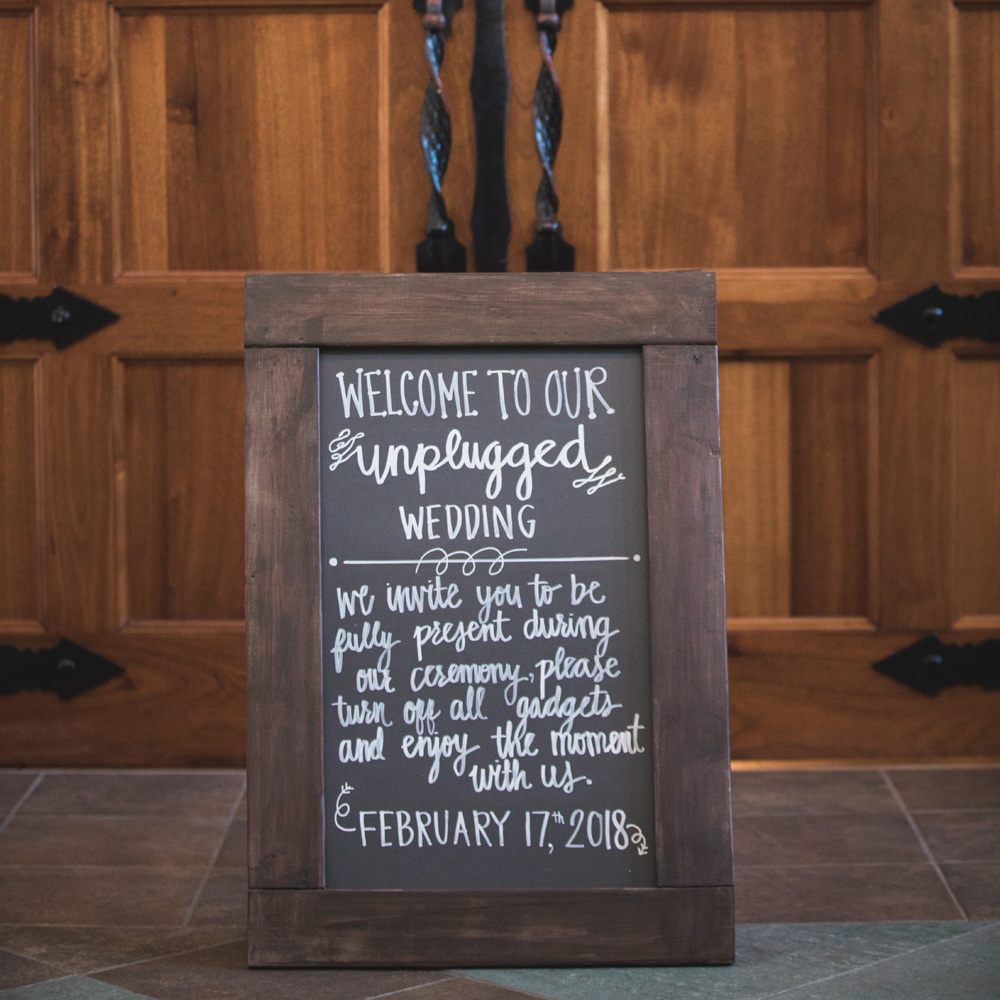 WELCOME TO OUR
unplugged
WEDDING
we invite you to be
fully present during
our ceremony, please
turn off all gadgets
and enjoy the moment
with us.
FEBRUARY 17th, 2018